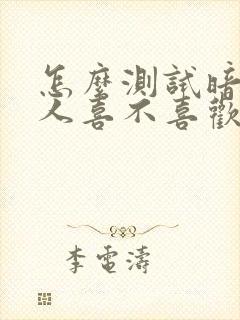 怎麼測試暗
人喜不喜歡
李電濤